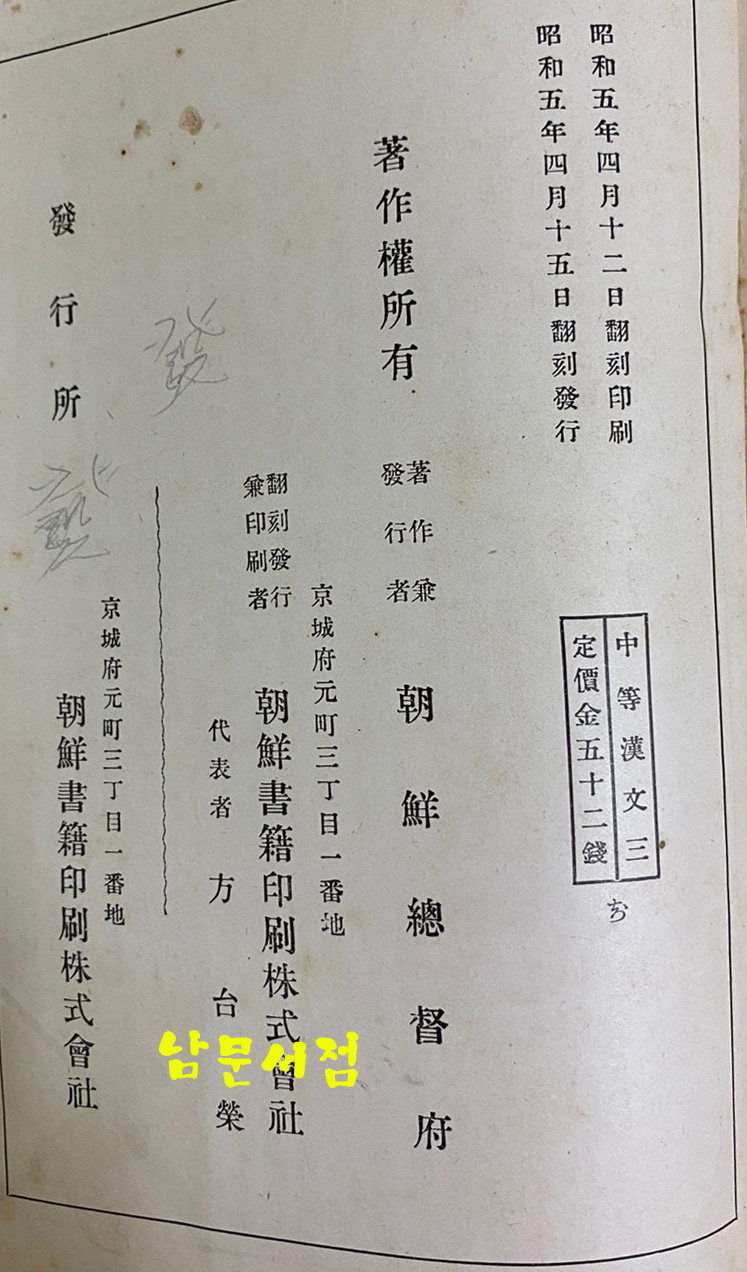 昭和五年四月十二日翻刻印刷
昭和五年四月十五日翻刻發行
中等漢文三
定價金五十二錢
著作權所有
著作兼
發行者
朝鮮總督府
京城府元町三丁目一番地
翻刻發行
兼印刷者
朝鮮書籍印刷株式會社
代表者 方台榮
發行所
京城府元町三丁目一番地
朝鮮書籍印刷株式會社
發
남문서점